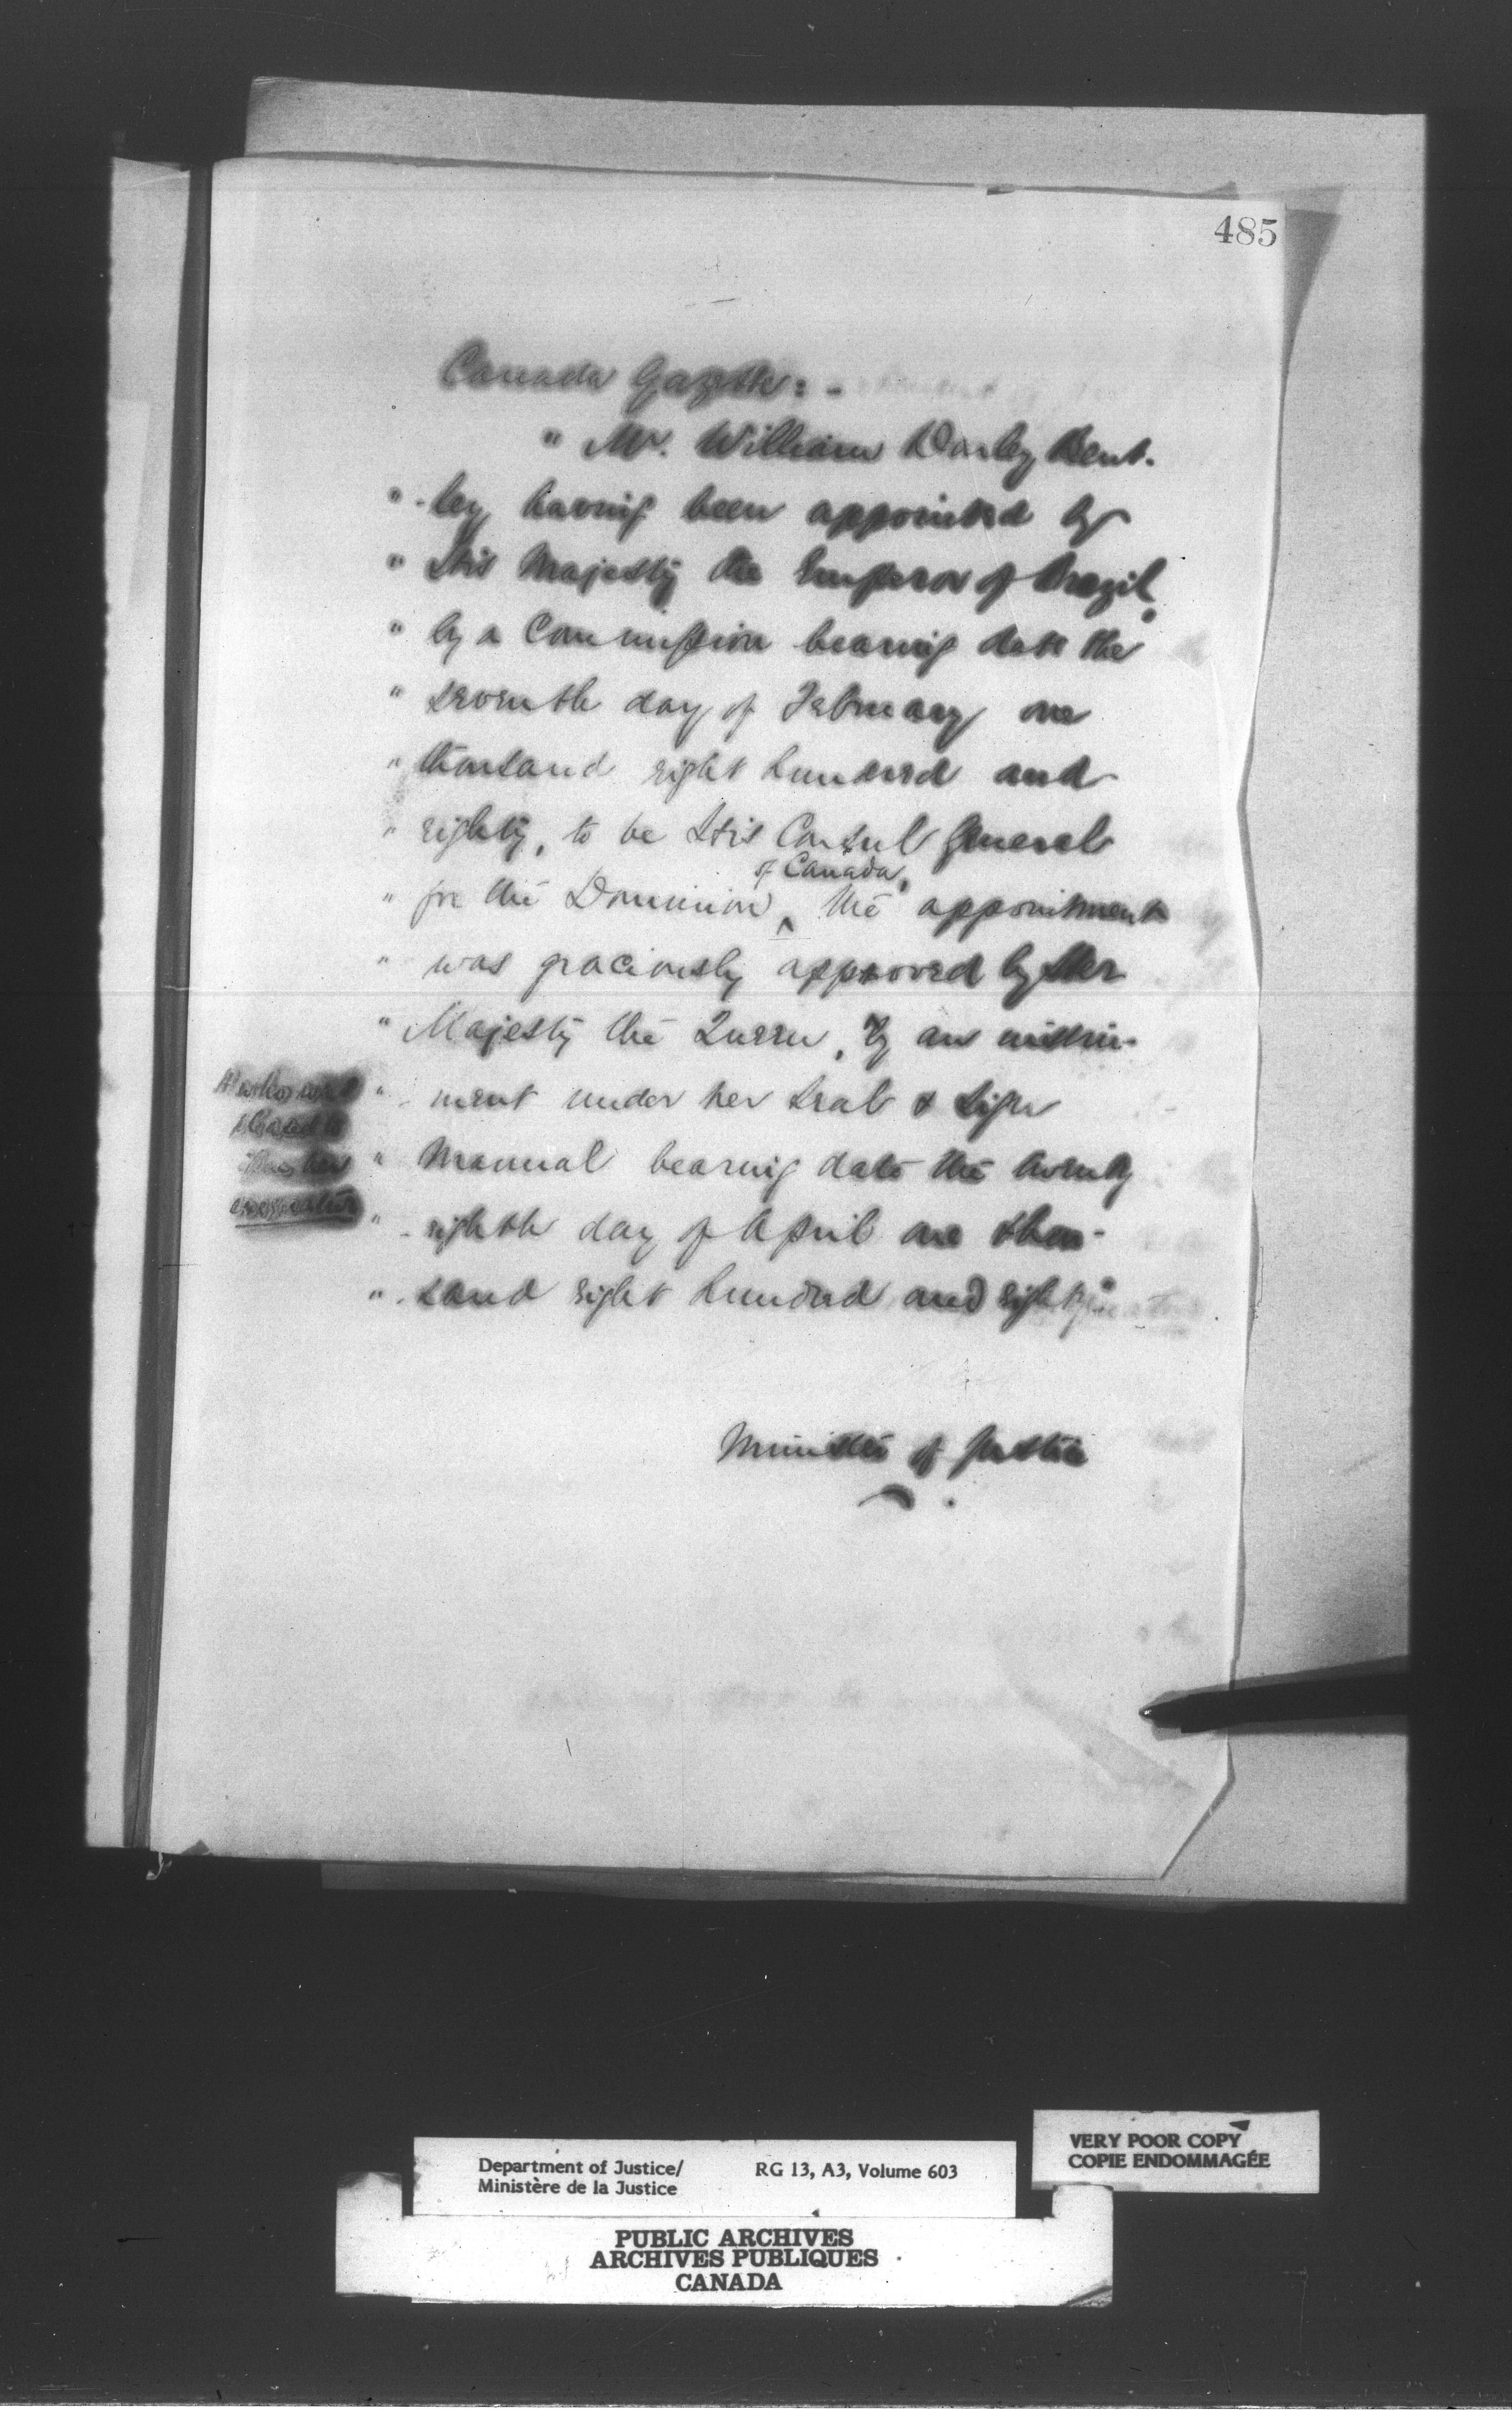 485
Canada Gazette:-
" Mr. William Darley Bent-
" -ley having been appointed by
" His Majesty the Emperor of Brazil,
" by a Commission bearing date the
" seventh day of February one
" thousand eight hundred and
" eighty, to be His Consul General
of Canada,
" for the Dominion ^ the appointment
" was graciously approved by Her
" Majesty the Queen, by an instru-
" - ment under her seal & sign
" Manual bearing date the twenty
" - eighth day of April one thou-
" - sand eight hundred and eighty"
Minister of Justice
Department of Justice/ RG 13, A3, Volume 603
Ministère de la Justice
VERY POOR COPY
COPIE ENDOMMAGÉE
PUBLIC ARCHIVES
ARCHIVES PUBLIQUES
CANADA